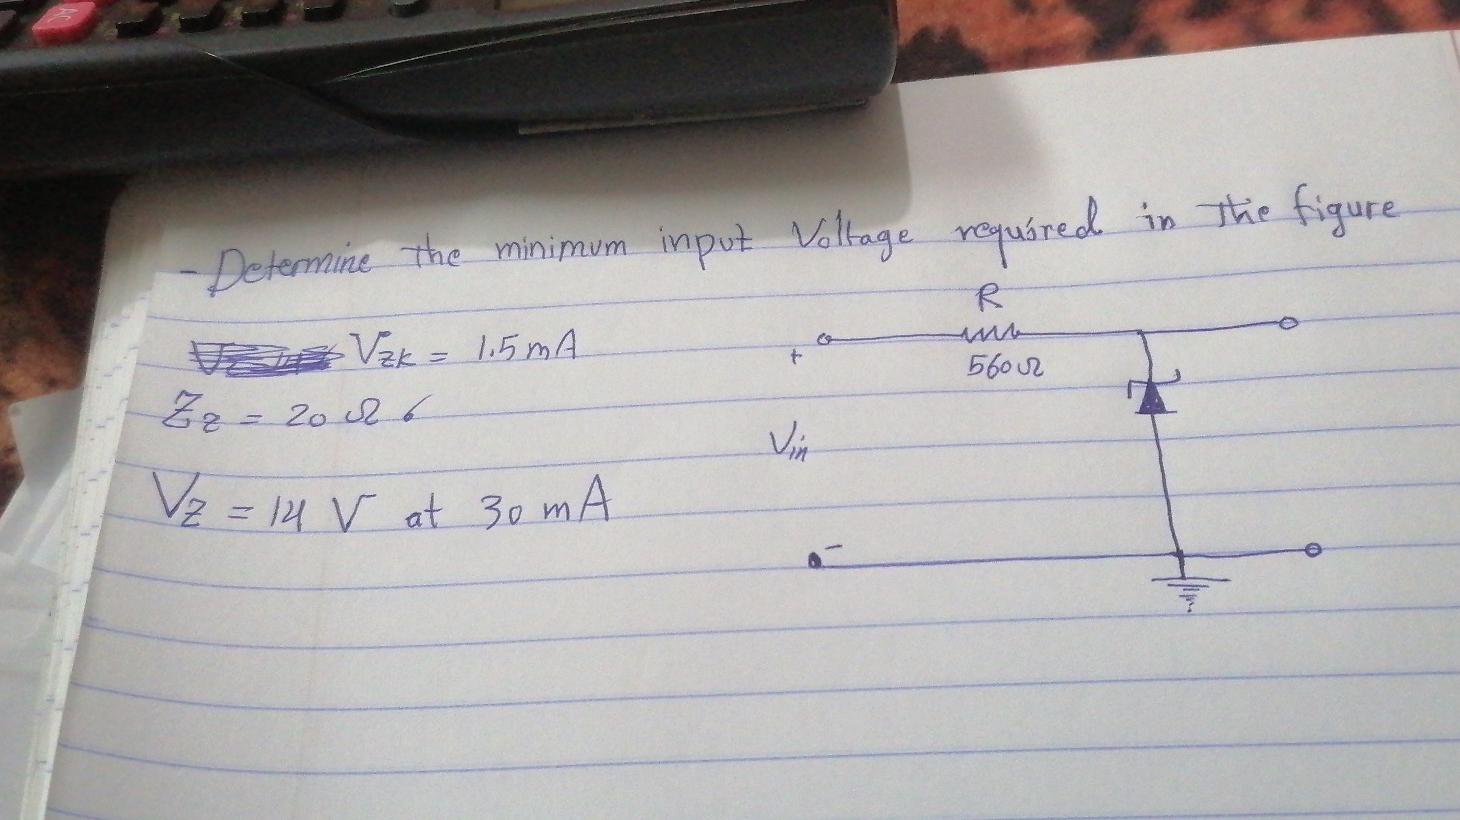 - Determine the minimum input Voltage required in the figure
R
VZK = 1.5 mA
+
560Ω
Zz = 20 Ω
Vin
VZ = 14 V at 30 mA
-